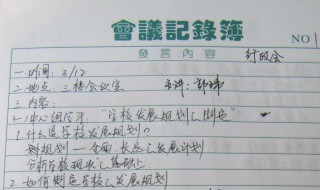 會議記錄簿
NO
發言內容 行政会
一.时间: 3/12
二.地点: 三楼会议室 主讲:
三.内容:
1.中心组学习 "学校发展规划之制定"
1.什么是学校发展规划?
规划——全面、长远之发展计划
分析学校现状之基础上
2.如何制定学校之发展规划